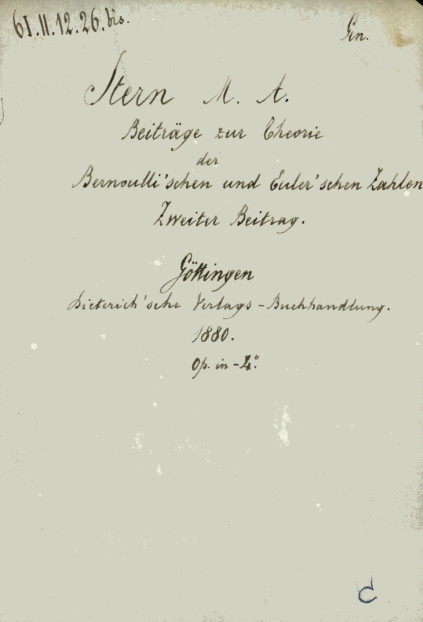 61.II.12.26.bis.
Gin.
Stern M. A.
Beiträge zur Theorie
der
Bernoulli'schen und Euler'schen Zahlen
Zweiter Beitrag.
Göttingen
Dieterich'sche Verlags-Buchhandlung.
1880.
Op. in-4°.
C